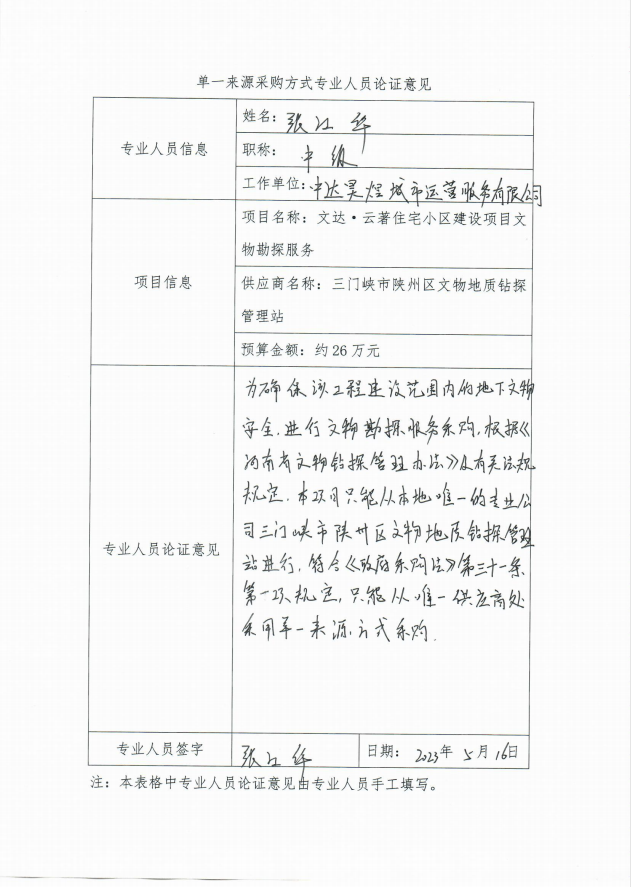 单一来源采购方式专业人员论证意见
专业人员信息
姓名：张江华
职称：中级
工作单位：中达昊煜城市运营服务有限公司
项目信息
项目名称：文达·云著住宅小区建设项目文
物勘探服务
供应商名称：三门峡市陕州区文物地质钻探
管理站
预算金额：约26万元
专业人员论证意见
为确保该工程建设范围内的地下文物
安全，进行文物勘探服务采购，根据《
河南省文物钻探管理办法》及有关法规
规定，本项目只能从本地唯一的专业公
司三门峡市陕州区文物地质钻探管理
站进行，符合《政府采购法》第三十一条
第一项规定，只能从唯一供应商处
采用单一来源方式采购．
专业人员签字
张江华
日期：2023年5月16日
注：本表格中专业人员论证意见由专业人员手工填写。